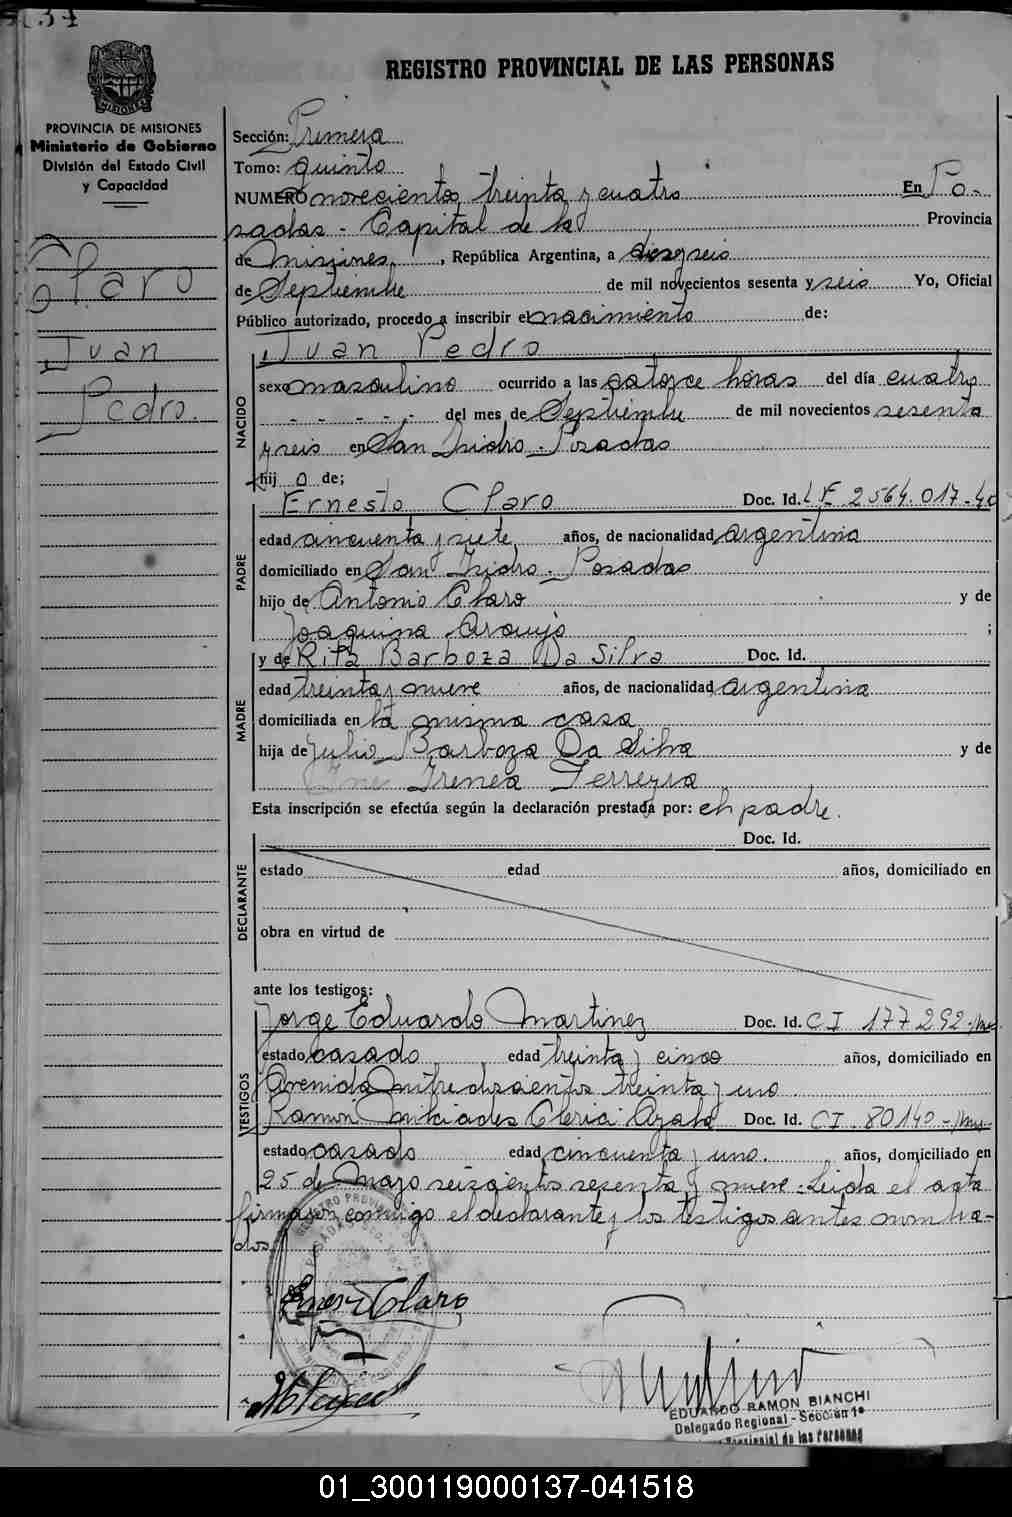 REGISTRO PROVINCIAL DE LAS PERSONAS
MISIONES
PROVINCIA DE MISIONES
Ministerio de Gobierno
División del Estado Civil
y Capacidad
Claro
Juan
Pedro.
Sección: Primera
Tomo: quinto
NUMERO novecientos treinta y cuatro En Po-
sadas - Capital de la Provincia
de Misiones, República Argentina, a dieciseis
de Septiembre de mil novecientos sesenta y seis Yo, Oficial
Público autorizado, procedo a inscribir el nacimiento de:
NACIDO
Juan Pedro
sexo masculino ocurrido a las catorce horas del día cuatro
- - - - - del mes de Septiembre de mil novecientos sesenta
y seis en San Isidro - Posadas
hij o de;
PADRE
Ernesto Claro Doc. Id. L E 2564.017-
edad cincuenta y siete, años, de nacionalidad argentina
domiciliado en San Isidro - Posadas
hijo de Antonio Claro y de
Joaquina Araujo ;
MADRE
y de Rita Barboza Da Silva Doc. Id.
edad treinta y nueve años, de nacionalidad argentina
domiciliada en la misma casa
hija de Julio Barboza Da Silva y de
Irenea Ferreyra
Esta inscripción se efectúa según la declaración prestada por: el padre.
DECLARANTE
Doc. Id.
estado edad años, domiciliado en
obra en virtud de
ante los testigos:
TESTIGOS
Jorge Eduardo Martinez Doc. Id. C I 177292-
estado casado edad treinta y cinco años, domiciliado en
Avenida Mitre doscientos treinta y uno
Ramón Milciades Clerici Ayala Doc. Id. C I. 80140-
estado casado edad cincuenta y uno. años, domiciliado en
25 de Mayo seiscientos sesenta y nueve - Leida el acta
firmaron conmigo el declarante y los testigos antes nombra-
dos
Claro
EDUARDO RAMON BIANCHI
Delegado Regional - Sección 1ª
Provincial de las Personas
01_300119000137-041518